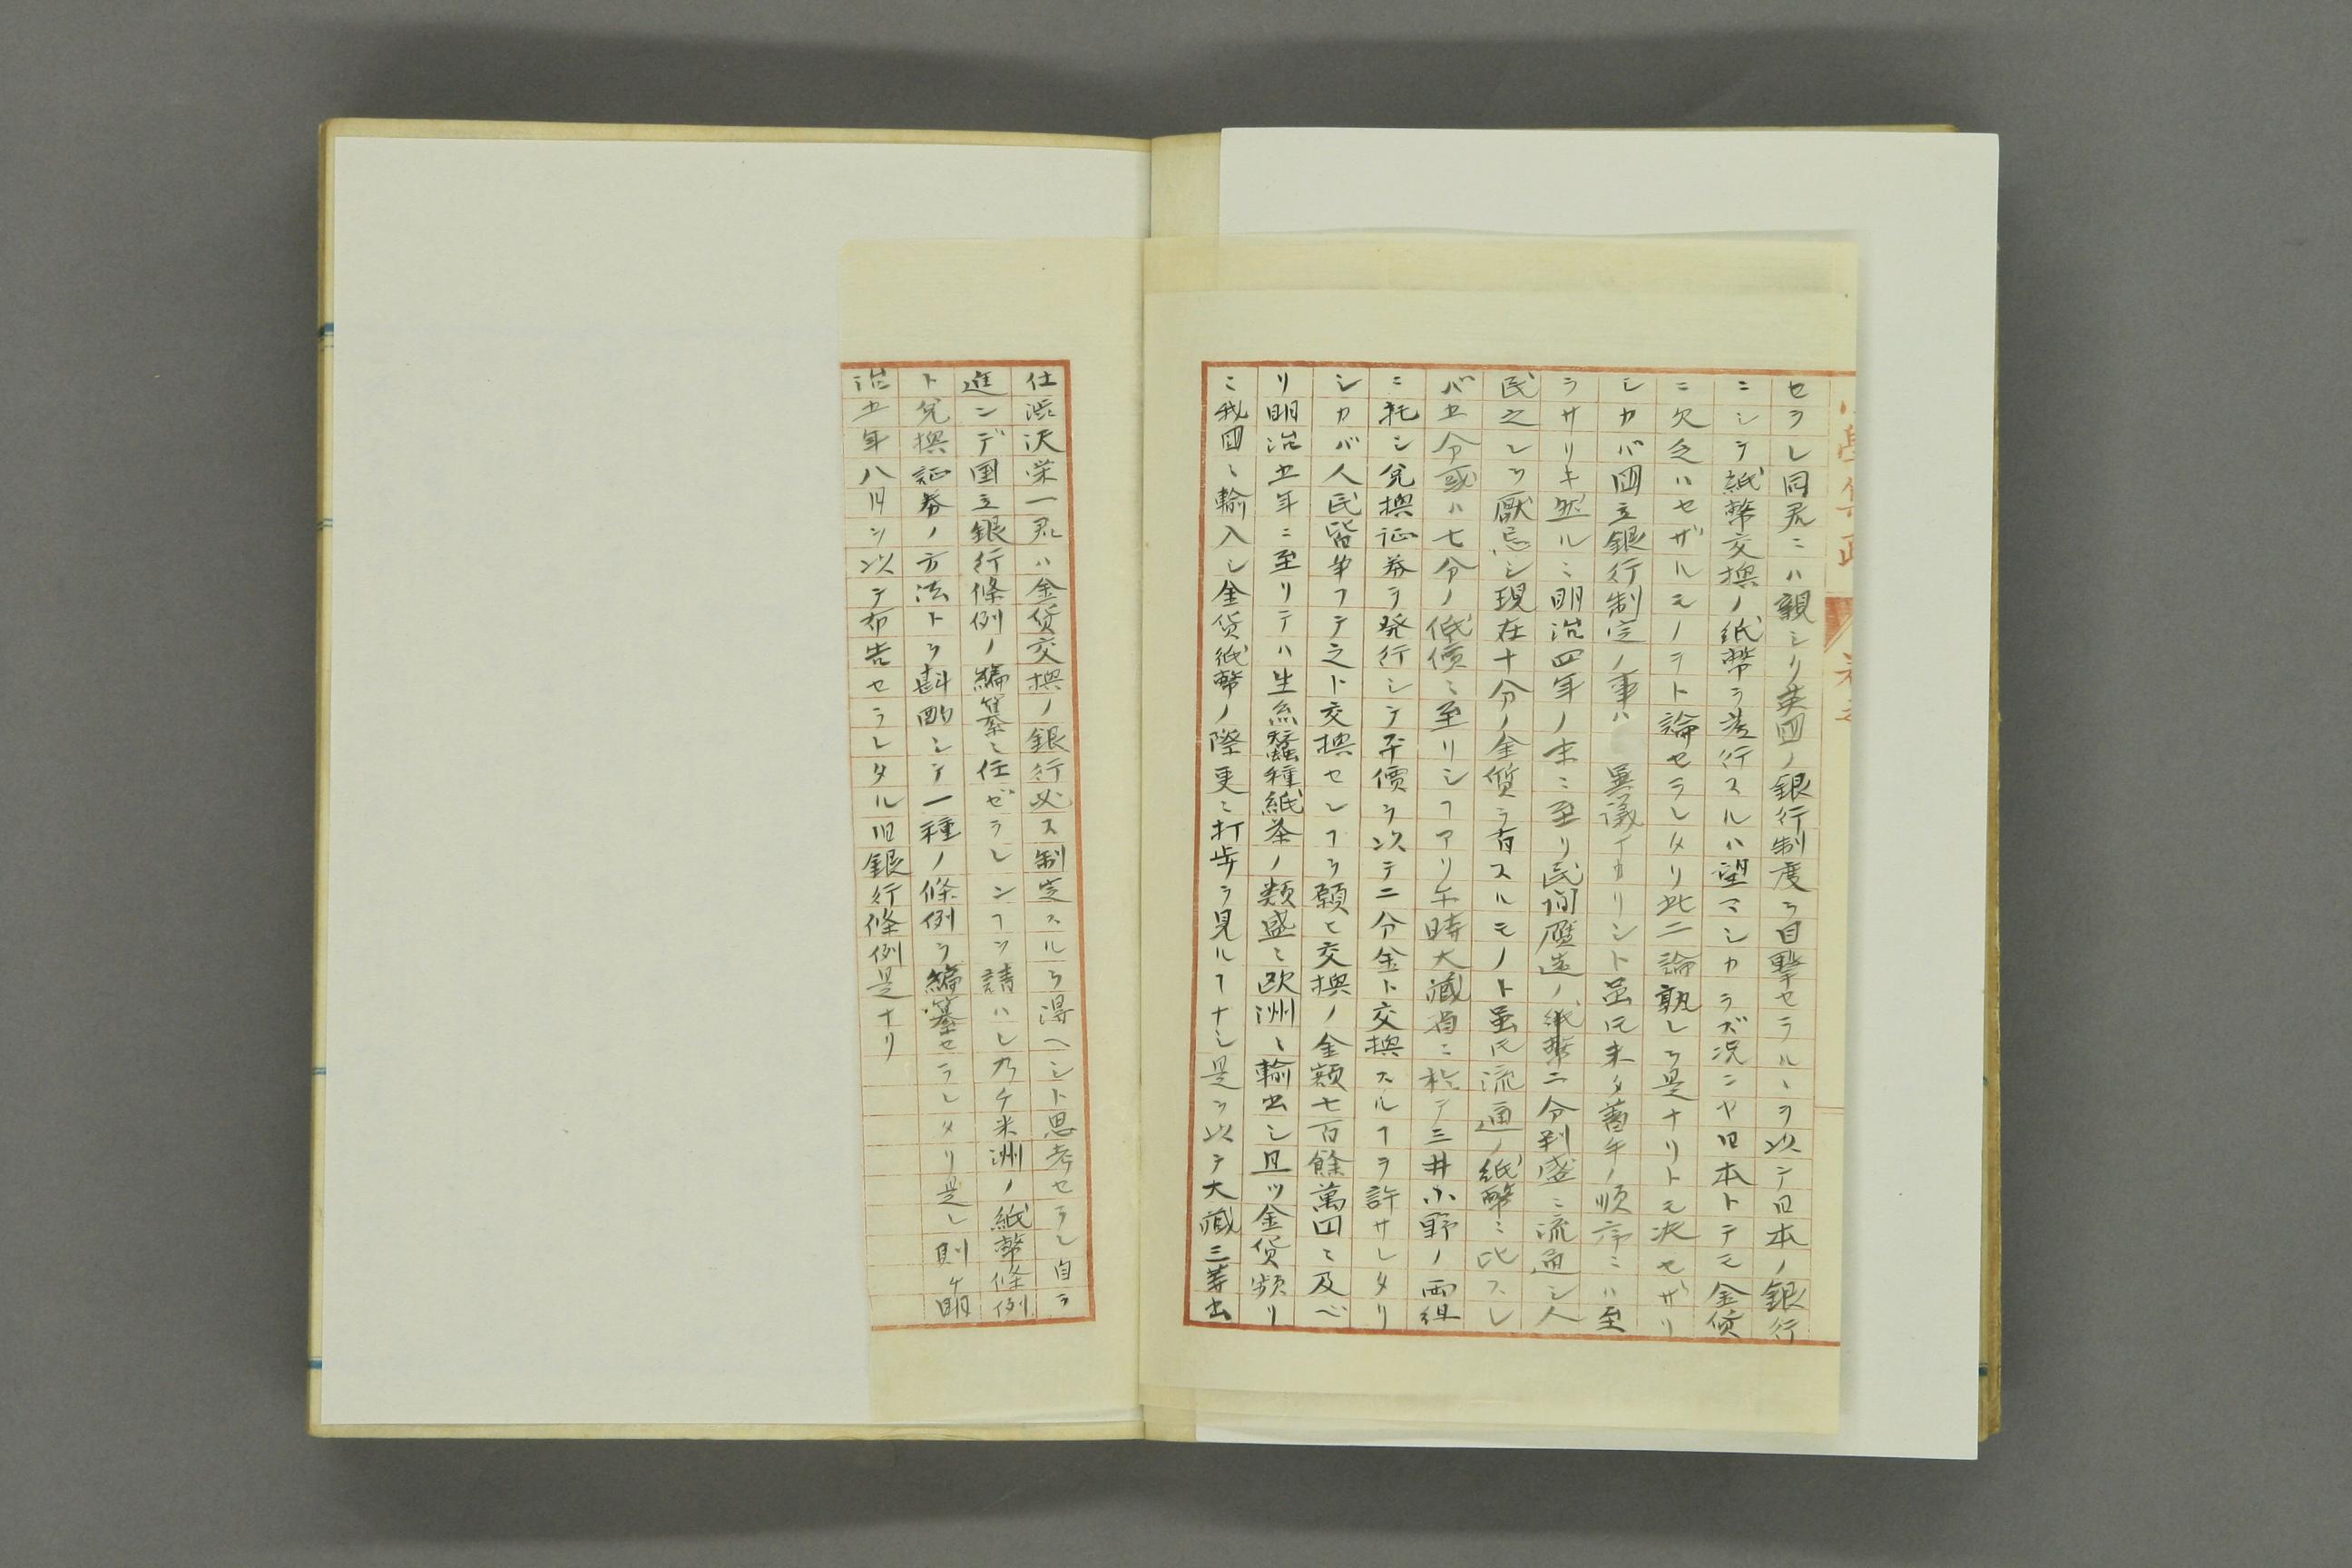 セラレ同君ニハ親シク英国ノ銀行制度ヲ目撃セラルヽヲ以テ日本ノ銀行
ニシテ紙幣交換ノ紙幣ヲ発行スルハ望マシカラズ況ンヤ日本トテモ金貨
ニ欠乏ハセザルモノヲト論セラレタリ此二論孰レヲ是ナリトモ決セザリ
シカバ国立銀行制定ノ事ハ異議ナカリシト雖𪜈未タ著手ノ順序ニハ至
ラサリキ然ルニ明治四年ノ末ニ至リ民間贋造ノ紙幣二分判盛ニ流通シ人
民之レヲ厭忌シ現在十分ノ金質ヲ有スルモノト雖𪜈流通ノ紙幣ニ比スレ
バ五分或ハ七分ノ低価ニ至リシヿアリ午時大蔵省ニ於テ三井小野ノ両組
ニ托シ兌換証券ヲ発行シテ平價ヲ以テ二分金ト交換スルヿヲ許サレタリ
シカバ人民皆争フテ之ト交換セシヿヲ願ヒ交換ノ金額七百餘萬円ニ及ベ
リ明治五年ニ至リテハ生糸蚕種紙茶ノ類盛ニ欧洲ニ輸出シ且ツ金貨頻リ
ニ我国ニ輸入シ金貨紙幣ノ際更ニ打歩ヲ見ルヿナシ是ヲ以テ大蔵三等出
仕渋沢栄一君ハ金貨交換ノ銀行必ス制定スルヲ得ヘシト思考セラレ自ラ
進ンデ国立銀行條例ノ編纂ニ任ゼラレンヿヲ請ハレ乃チ米洲ノ紙幣條例
ト兌換証券ノ方法トヲ斟酌シテ一種ノ條例ヲ編纂セラレタリ是レ則チ明
治五年八月ヲ以テ布告セラレタル旧銀行條例是ナリ